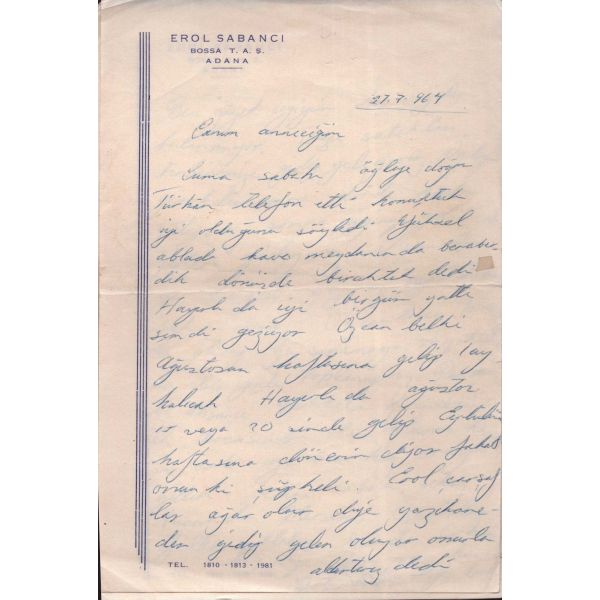 EROL SABANCI
BOSSA T. A. Ş.
ADANA
27.7.964
Canım anneciğim
Cuma sabahı öğleye doğru
Türkân telefon etti konuştuk
iyi olduğunu söyledi Yüksel
ablada hava meydanında beraber
dik dönüşde bıraktık dedi
Hayrola da iyi birgün yattı
şimdi geçiyor Özcan belki
Ağustosun haftasına gelip 1 ay
kalıcak da ağustos
10 veya 20 sinde gelip Eylülün
haftasına dönerim diyor fakat
onun ki şüpheli. Erol çarşaf
lar ağar olur diye yazıhane-
den gidip gelen oluyor onunla
dedi
TEL. 1810 - 1813 - 1981